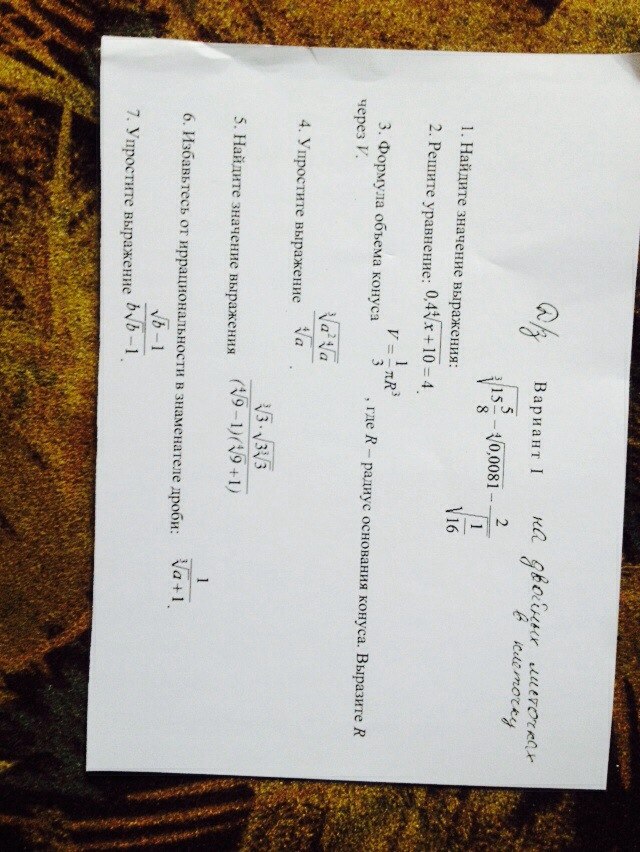 Д/з Вариант 1 на двойных листочках
в клеточку
1. Найдите значение выражения: ∛(15 5/8) − ∜0,0081 − 2/√(1/16)
2. Решите уравнение: 0,4∜(x + 10) = 4.
3. Формула объема конуса V = 1/3 πR³, где R – радиус основания конуса. Выразите R
через V.
4. Упростите выражение ∛(a²∜a)/∜a.
5. Найдите значение выражения (∛3 · √(3∛3))/((∜9 − 1)(∜9 + 1))
6. Избавьтесь от иррациональности в знаменателе дроби: 1/(∛a + 1).
7. Упростите выражение (√b − 1)/(b√b − 1).